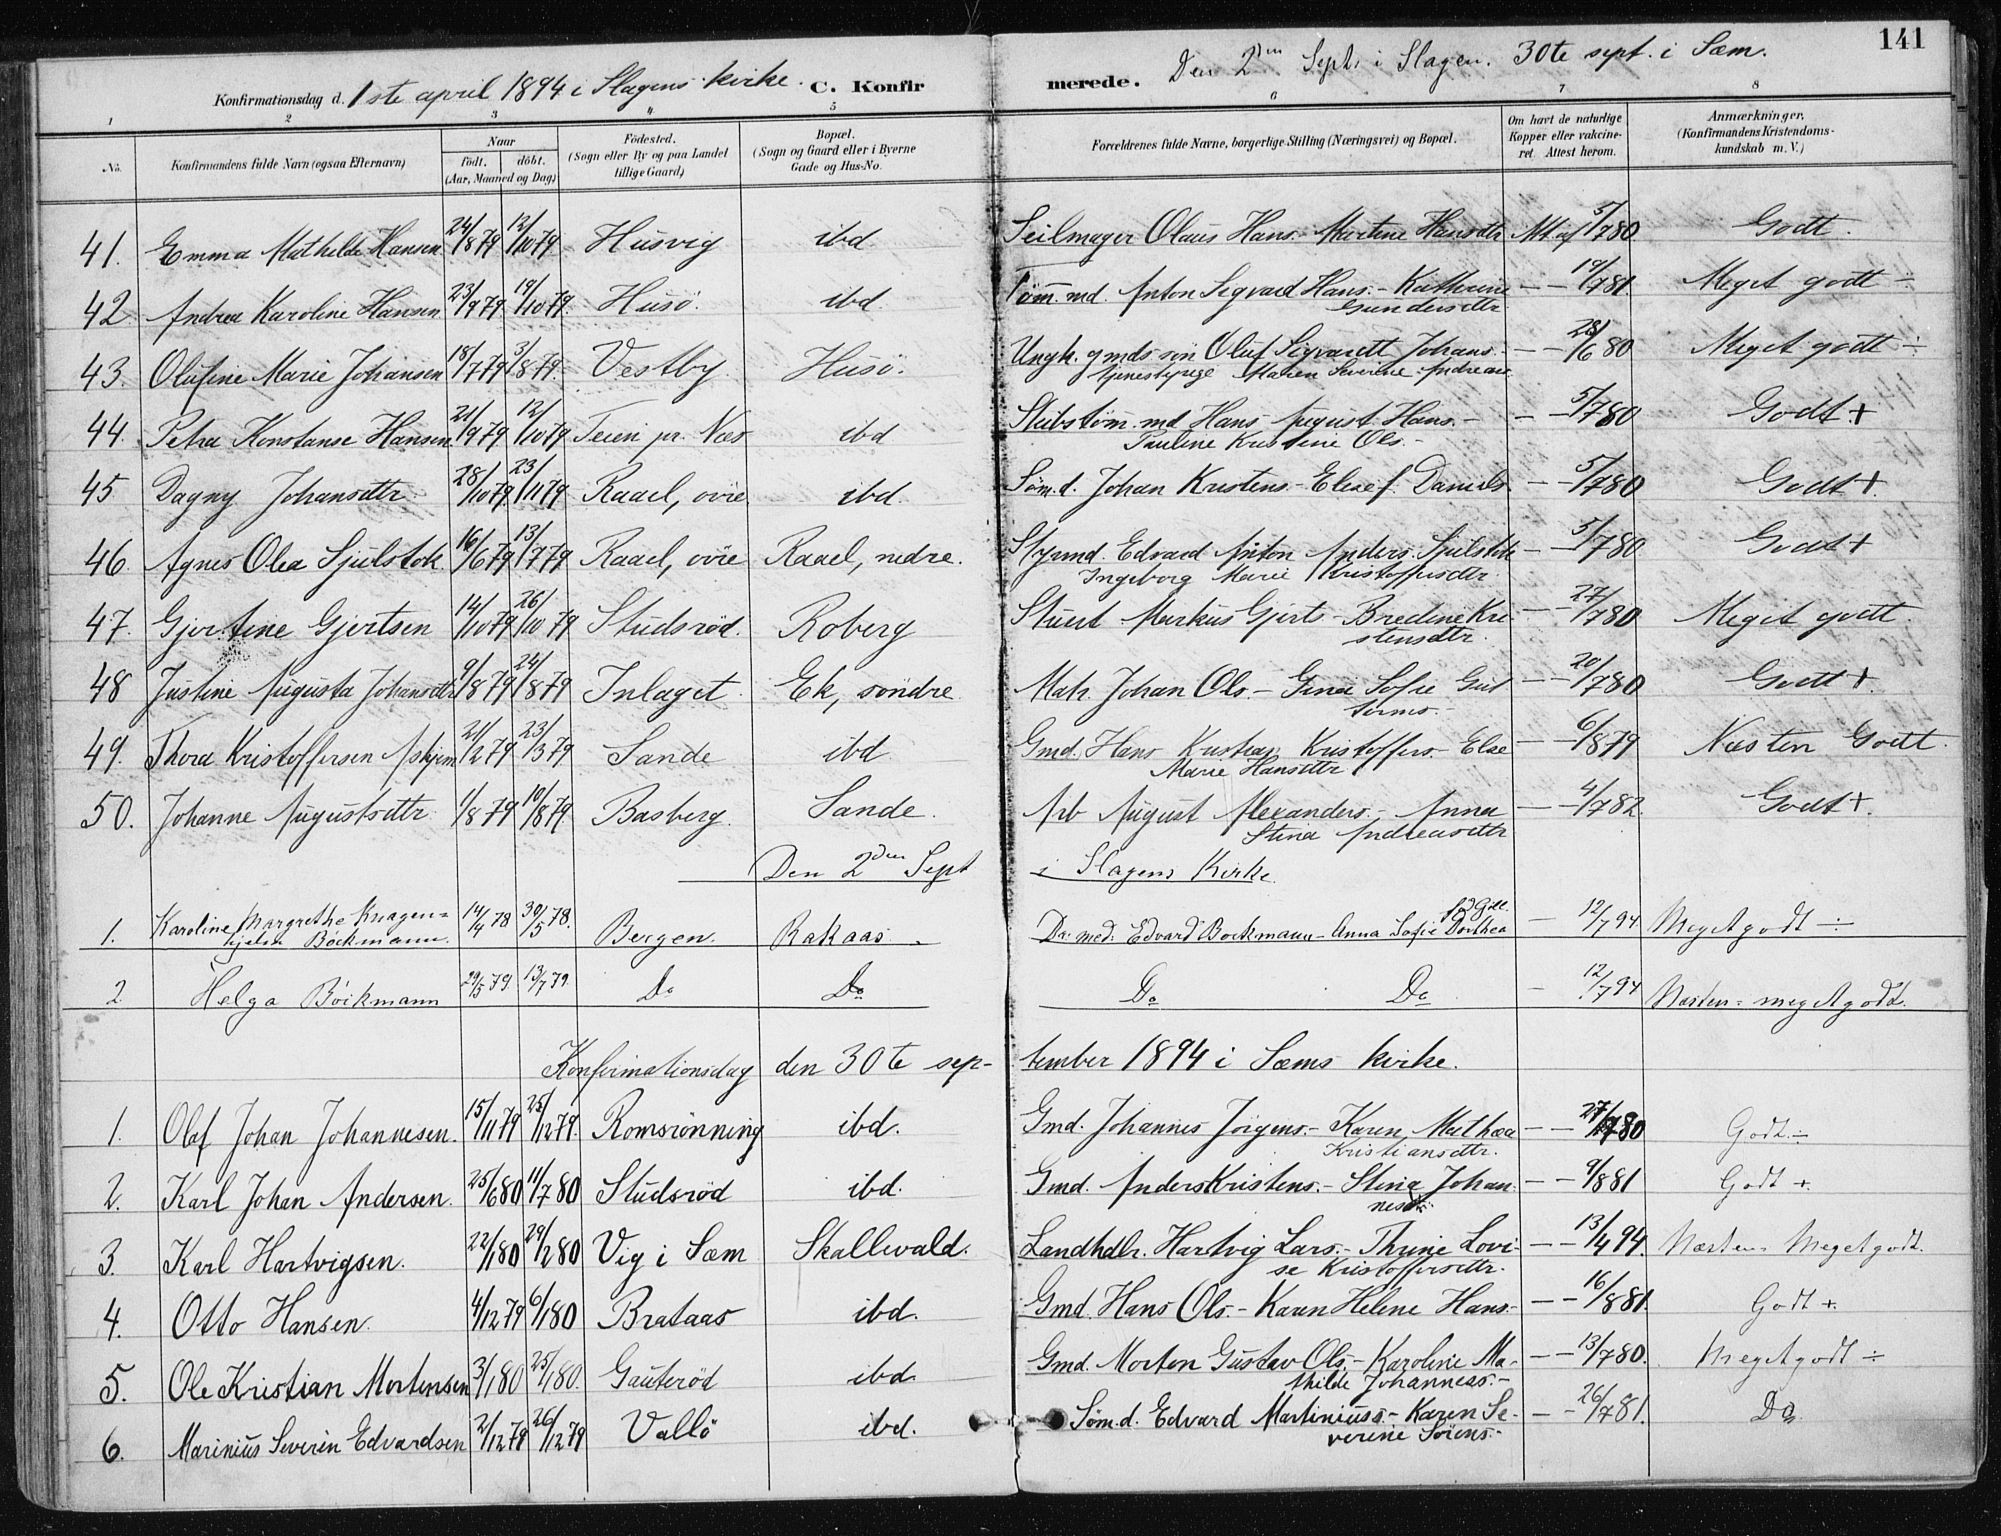 141
Konfirmationsdag d. 1ste april 1894 i Slagens kirke. C. Konfir merede. Den 2den Sept. i Slagen. 30te sept. i Sæm.
1 2 3 4 5 6 7 8
No. Konfirmandens fulde Navn (ogsaa Efternavn) Naar født. döbt. (Aar, Maaned og Dag) Födested. (Sogn eller By og paa Landet tillige Gaard) Bopæl. (Sogn og Gaard eller i Byerne Gade og Hus-No. Forældrenes fulde Navne, borgerlige Stilling (Næringsvei) og Bopæl. Om havt de naturlige Kopper eller vakcineret. Attest herom. Anmærkninger. (Konfirmandens Kristendomskundskab m. V.)
41. Emma Mathilde Hansen 24/8 79 12/10 79 Husvig ibd Seilmager Olaus Hans.- Martine Hansdtr 5/7 80 Godt.
42 Andrea Karoline Hansen 23/9 79 19/10 79. Husö. ibd. Töm. md. Anton Segvard Hans.- Kathrine Gundersdtr — - 19/7 81. Meget godt ÷
43. Olufine Marie Johansen 18/7 79 3/8 79. Vestby Husö. Ungk. gmds sön Oluf Sigvartt Johans.- tjenestpige Maren Severine Andreas — - 28/6 80 Meget godt ÷
44. Petra Konstanse Hansen 21/9 79 12/10 79 Teien pr. Næs ibd Skibstöm. md Hans August Hans.- Pauline Kristine Ols.- — - 5/7 80 Godt +
45 Dagny Johansdtr. 28/10 79. 23/11 79 Raael, övre ibd. Söm.d. Johan Kristens.- Elisef. Daniels — - 5/7 80 Godt +.
46. Agnes Olea Sjulstok 16/6 79 13/7 79 Raael, övre Raael, nedre. Styrmd. Edvard Anton Anders. Sjulstok Ingeborg Marie Kristoffersdtr. — - 5/7 80 Godt +
47. Gjertine Gjertsen 14/10 79 26/10 79 Studsröd. Roberg Stuert Markus Gjerts.- Bredine Kristensdtr. — - 27/7 80 Meget godt.
48 Justine Augusta Johansdtr 9/8 79 24/8 79 Inlaget. Ek, söndre Matr. Johan Ols.- Gina Sofie Guttorms.- — - 20/7 80 Godt +.
49. Thora Kristoffersen Askjem 21/2 79 23/3 79 Sande ibd Gmd. Hans Kristian Kristoffers.- Else Marie Hansdtr — - 6/8 79 Næsten Godt.
50. Johanne Augustsdtr. 1/8 79 10/8 79. Basberg. Sande. Arb August Alexanders.- Anna Stina Andreasdtr — - 4/7 82. Godt +.
Den 2den Sept i Slagens Kirke.
1. Karoline Margrethe Knagenhjelm Böckmann. 14/4 78 30/5 78. Bergen. Rakaas. Dr: med: Edvard Bockmann - Anna Sofie Dorthea — 12/7 94. Meget godt ÷
2 Helga Böckmann 29/5 79. 13/7 79. Do Do Do Do - 12/7 94 Næsten = meget godt.
Konfirmationsdag den 30te september 1894 i Sæms kirke.
1. Olaf Johan Johannesen. 15/11 79 25/12 79. Romsrönning ibd. Gmd. Johannes Jörgens.- Karen Mathea Kristiansdtr. — - 27/7 80 Godt ÷
2. Karl Johan Andersen. 25/6 80 11/7 80 Studsröd ibd. Gmd. Anders Kristens.- Stina Johannesdtr. — - 9/8 81 Godt +.
3. Karl Hartvigsen. 22/1 80 29/2 80 Vig i Sæm Skallevald. Landhdlr. Hartvig Lars.- Thrine Lovise Kristoffersdtr. — - 13/4 94. Næsten Meget godt.
4. Otto Hansen. 4/12 79 6/1 80 Brataas ibd. Gmd. Hans Ols.- Karen Helene Hans.- — - 16/8 81. Godt +.
5. Ole Kristian Mortensen 3/1 80 25/1 80. Gauteröd ibd. Gmd. Morten Gustav Ols.- Karoline Mathilde Johanness.- — - 13/7 80. Meget godt ÷
6. Marinius Severin Edvardsen 2/12 79 26/12 79 Vallö ibd. Söm.d. Edvard Martiniuss.- Karen Severine Sörens.- — - 26/7 81. Do.